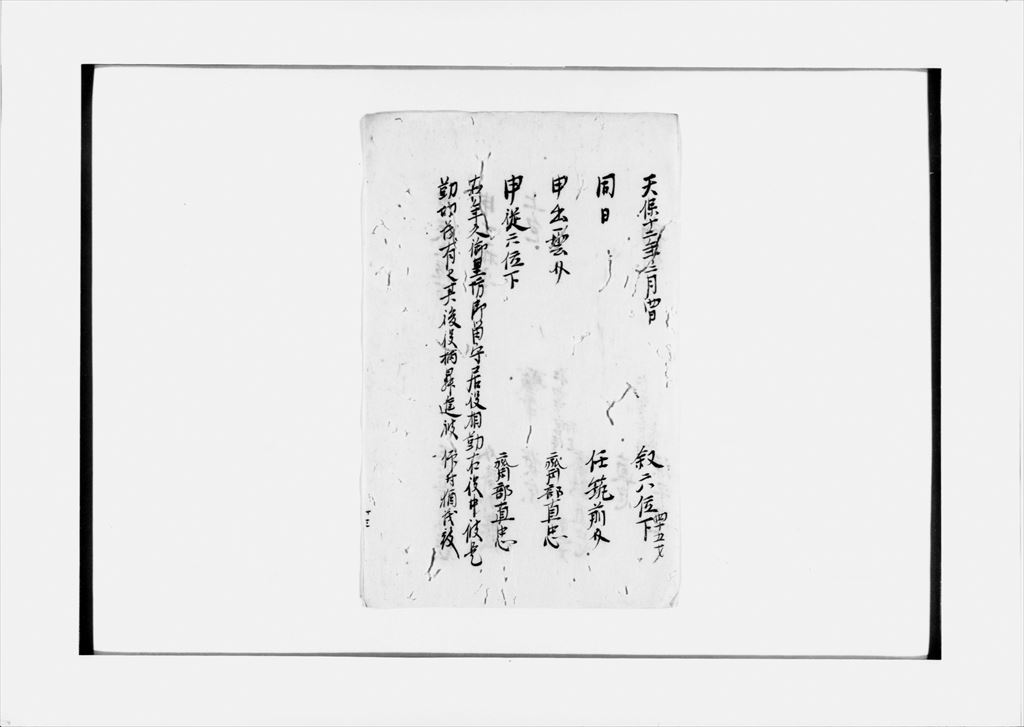 天保十二年二月四日 叙六位下 四十五才
同日 任筑前介
申出雲介 齋部直忠
申従六位下 齋部直忠
右年久御里坊御留守居役相勤右役中彼是
勤功茂有之其後役柄昇進被 仰付猶茂被
十三